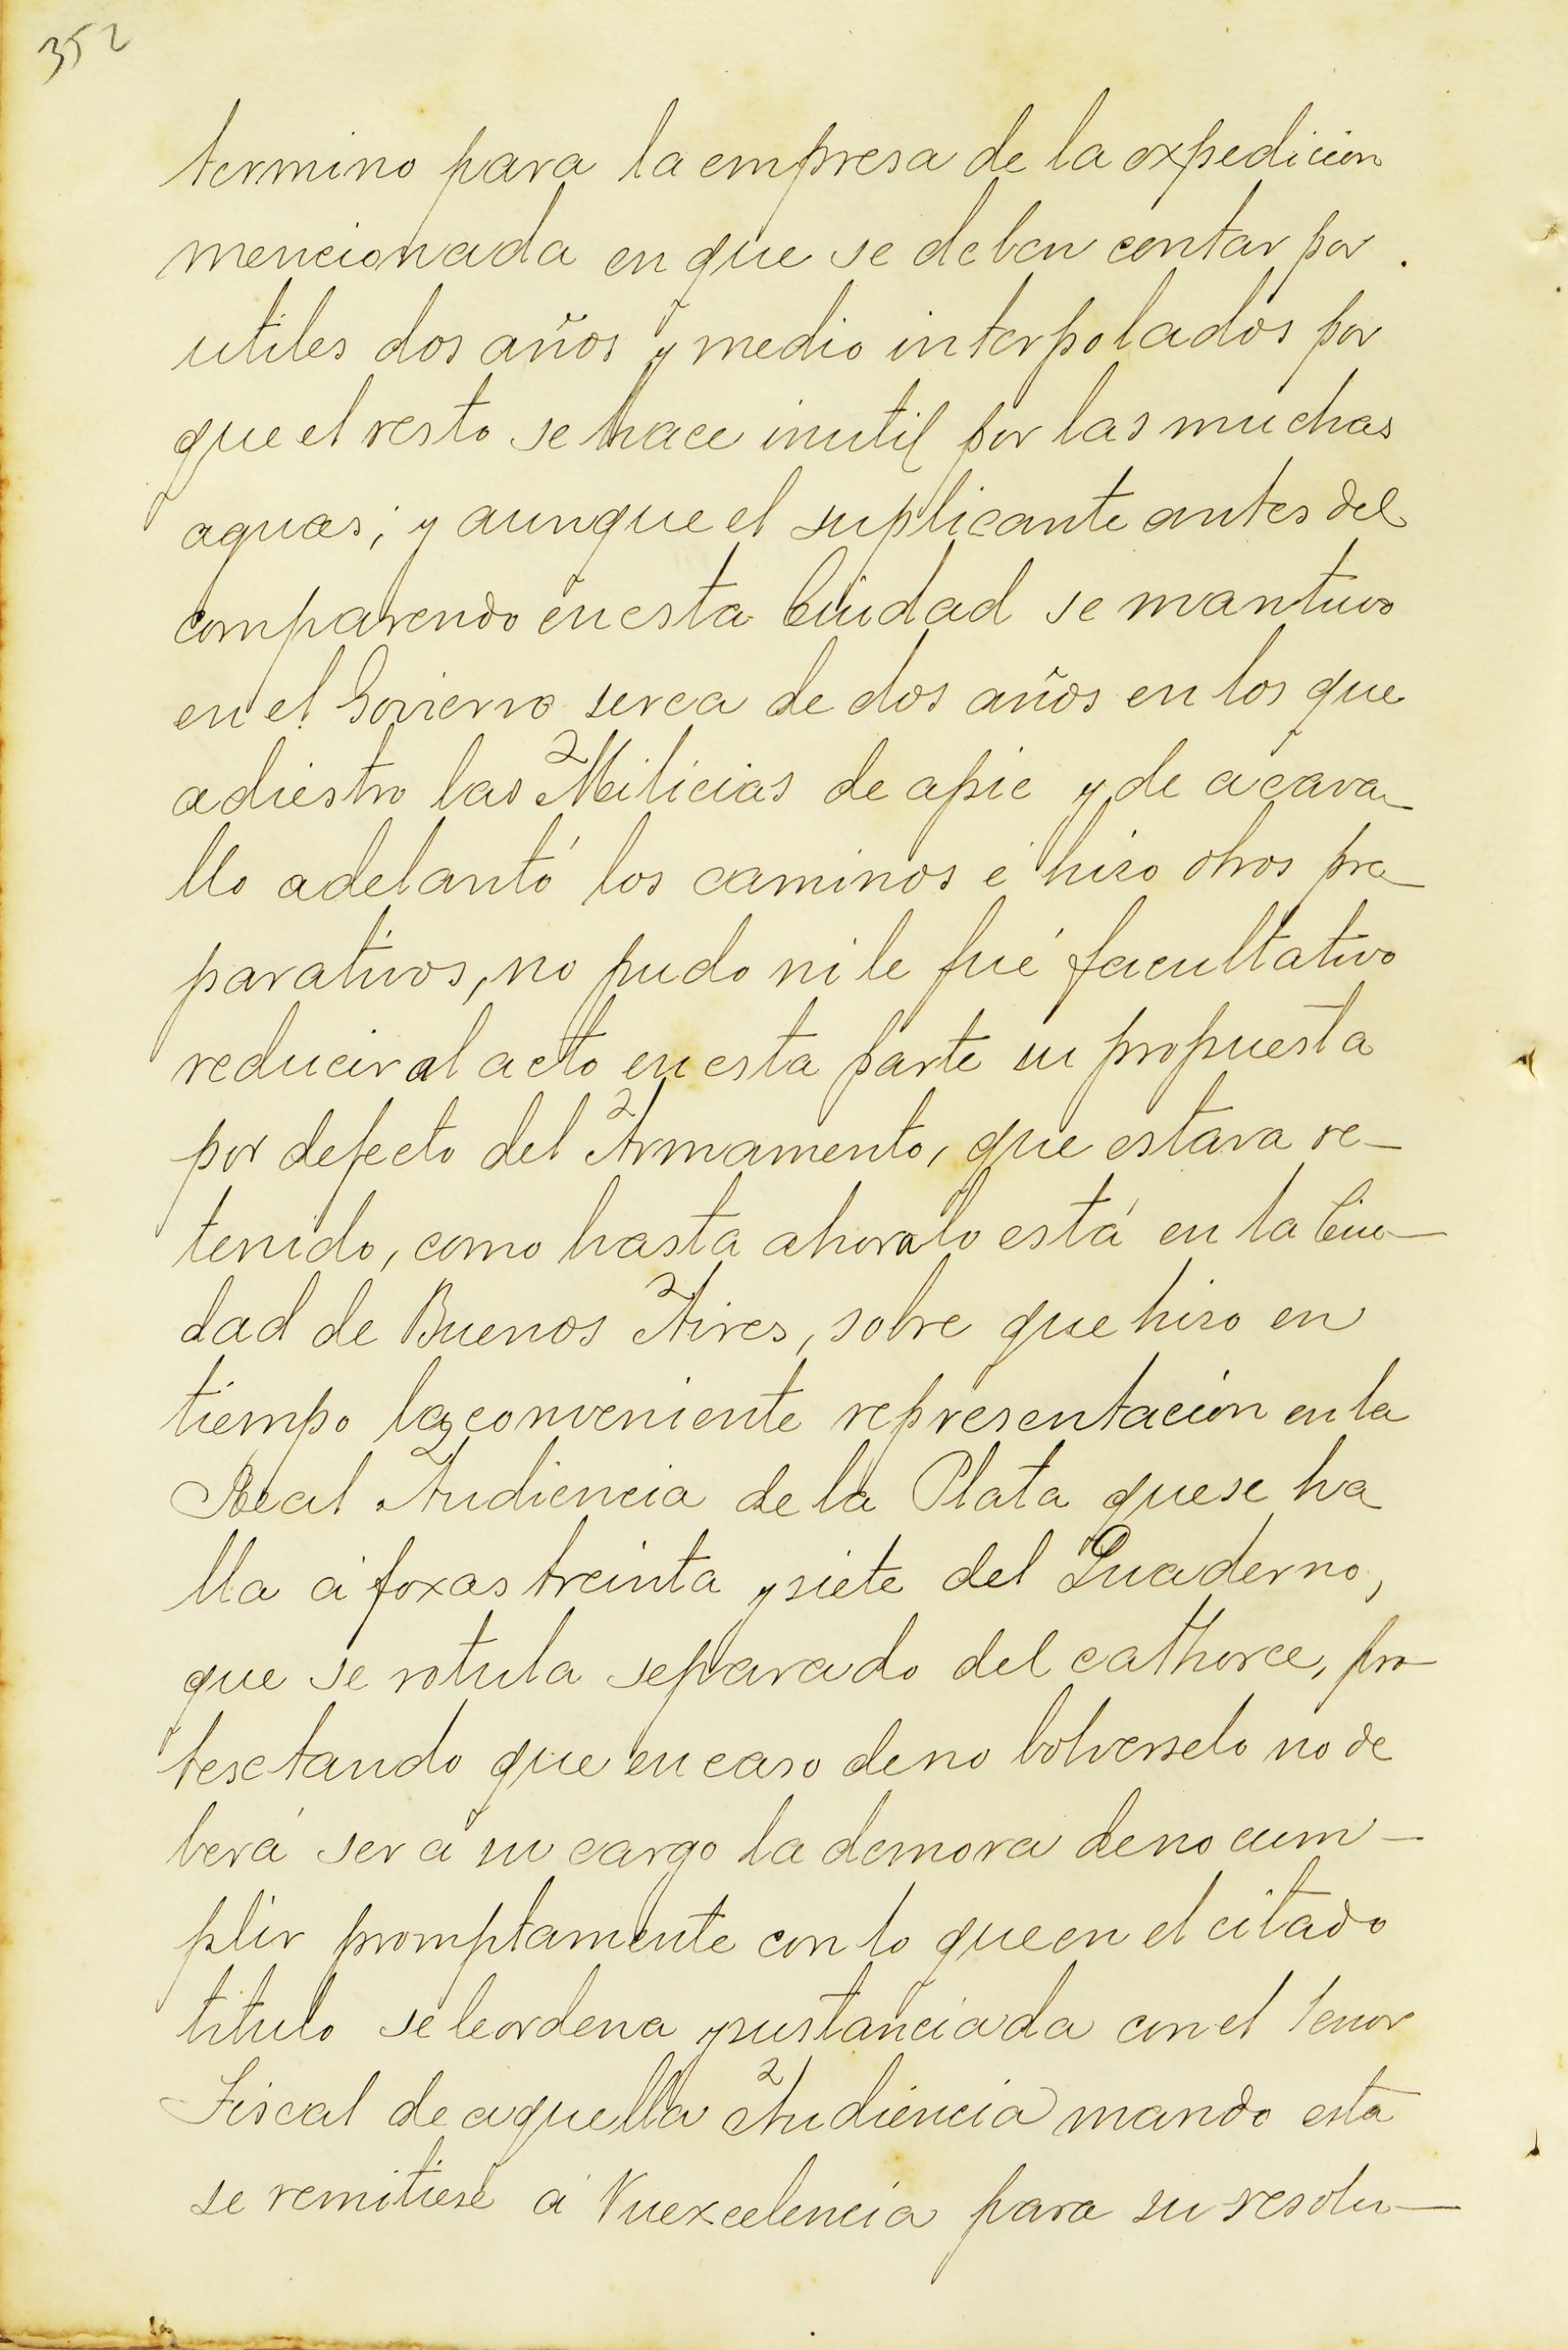 352
termino para la empresa de la expedicion
mencionada en que se deben contar por
utiles dos años y medio interpolados por
que el resto se hace inutil por las muchas
aguas; y aunque el suplicante antes del
comparendo en esta Ciudad se mantuvo
en el Govierno serca de dos años en los que
adiestro las Milicias de apie y de acava
llo adelantó los caminos é hiso otros pre
parativos, no pudo ni le fué facultativo
reducir al acto en esta parte su propuesta
por defecto del Armamento, que estava re-
tenido, como hasta ahora lo está en la Ciu-
dad de Buenos Aires, sobre que hiso en
tiempo la conveniente representacion en la
Real Audiencia de la Plata que se ha
lla á foxas treinta y siete del Quaderno,
que se rotula separado del cathorce, pro-
textando que en caso de no bolverselo no de
berá ser á su cargo la demora de no cum-
plir promptamente con lo que en el citado
titulo se le ordena y sustanciada con el Senor
Fiscal de aquella Audiencia mando esta
se remitiese á Vuexcelencia para su resolu-